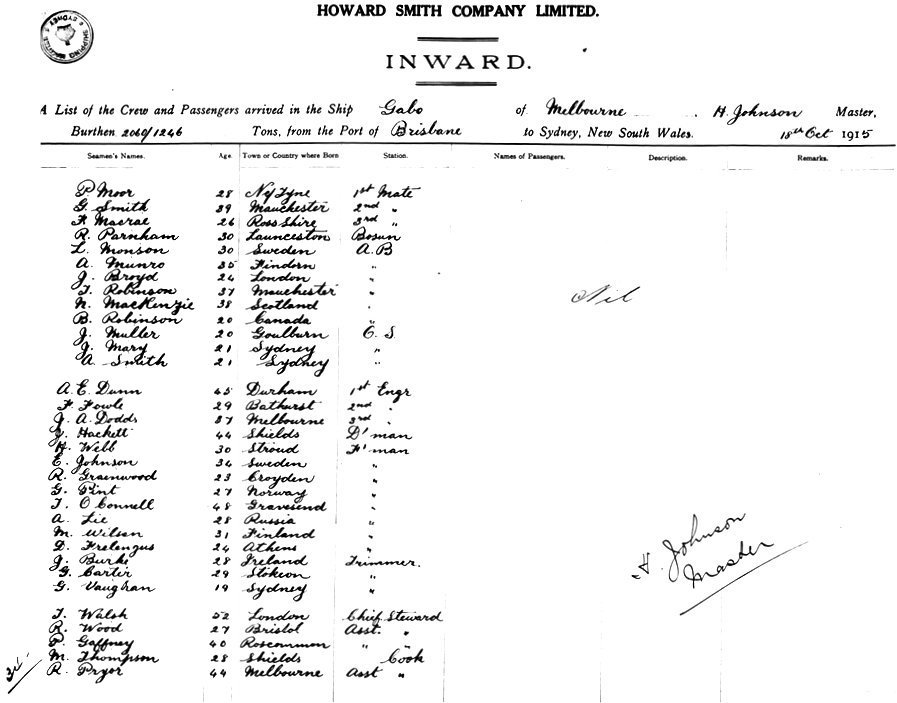 HOWARD SMITH COMPANY LIMITED.
INWARD.
A List of the Crew and Passengers arrived in the Ship Gabo of Melbourne H. Johnson Master,
Burthen 2060/1246 Tons, from the Port of Brisbane to Sydney, New South Wales. 18th Oct 1915
Seamen's Names. Age. Town or Country where Born Station. Names of Passengers. Description. Remarks.
P Moor 28 1st Mate
G. Smith 39 Manchester 2nd "
F. Macrae 26 Ross Shire 3rd "
R. Parnham 30 Launceston Bosun
L. Monson 30 Sweden A.B
A. Munro 35 Findorn "
J. Broyd 24 London "
T. Robinson 37 Manchester "
N. MacKenzie 38 Scotland "
Nil
B. Robinson 20 Canada "
J. Muller 20 Goulburn O. S
J. Mary 21 Sydney "
A. Smith 21 Sydney "
A. E. Dunn 45 Durham 1st Engr
F. Fowle 29 Bathurst 2nd "
J. A. Dodds 37 Melbourne 3rd "
J. Hackett 44 Shields D'man
H. Webb 30 Stroud F'man
E. Johnson 34 Sweden "
R. Greenwood 23 Croyden "
G. Pint 27 Norway "
T. O Connell 48 Gravesend "
A. Lie 28 Russia "
M. Wilson 31 Finland "
D. Frelengus 24 Athens "
J. Burke 28 Ireland Trimmer.
G. Carter 29 "
G. Vaughan 19 Sydney "
H. Johnson
Master
T. Walsh 52 London Chief Steward
R. Wood 27 Bristol Asst. "
P. Gaffney 40 Roscommon " "
M. Thompson 28 Shields Cook
R. Pryor 44 Melbourne Asst "